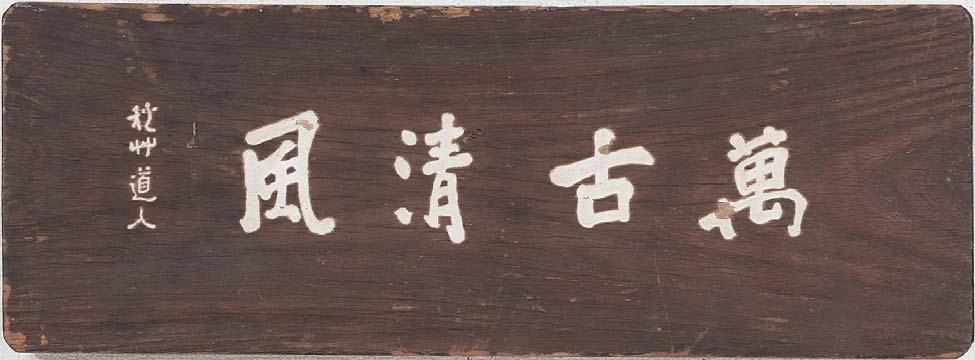 萬古清風
秋艸道人